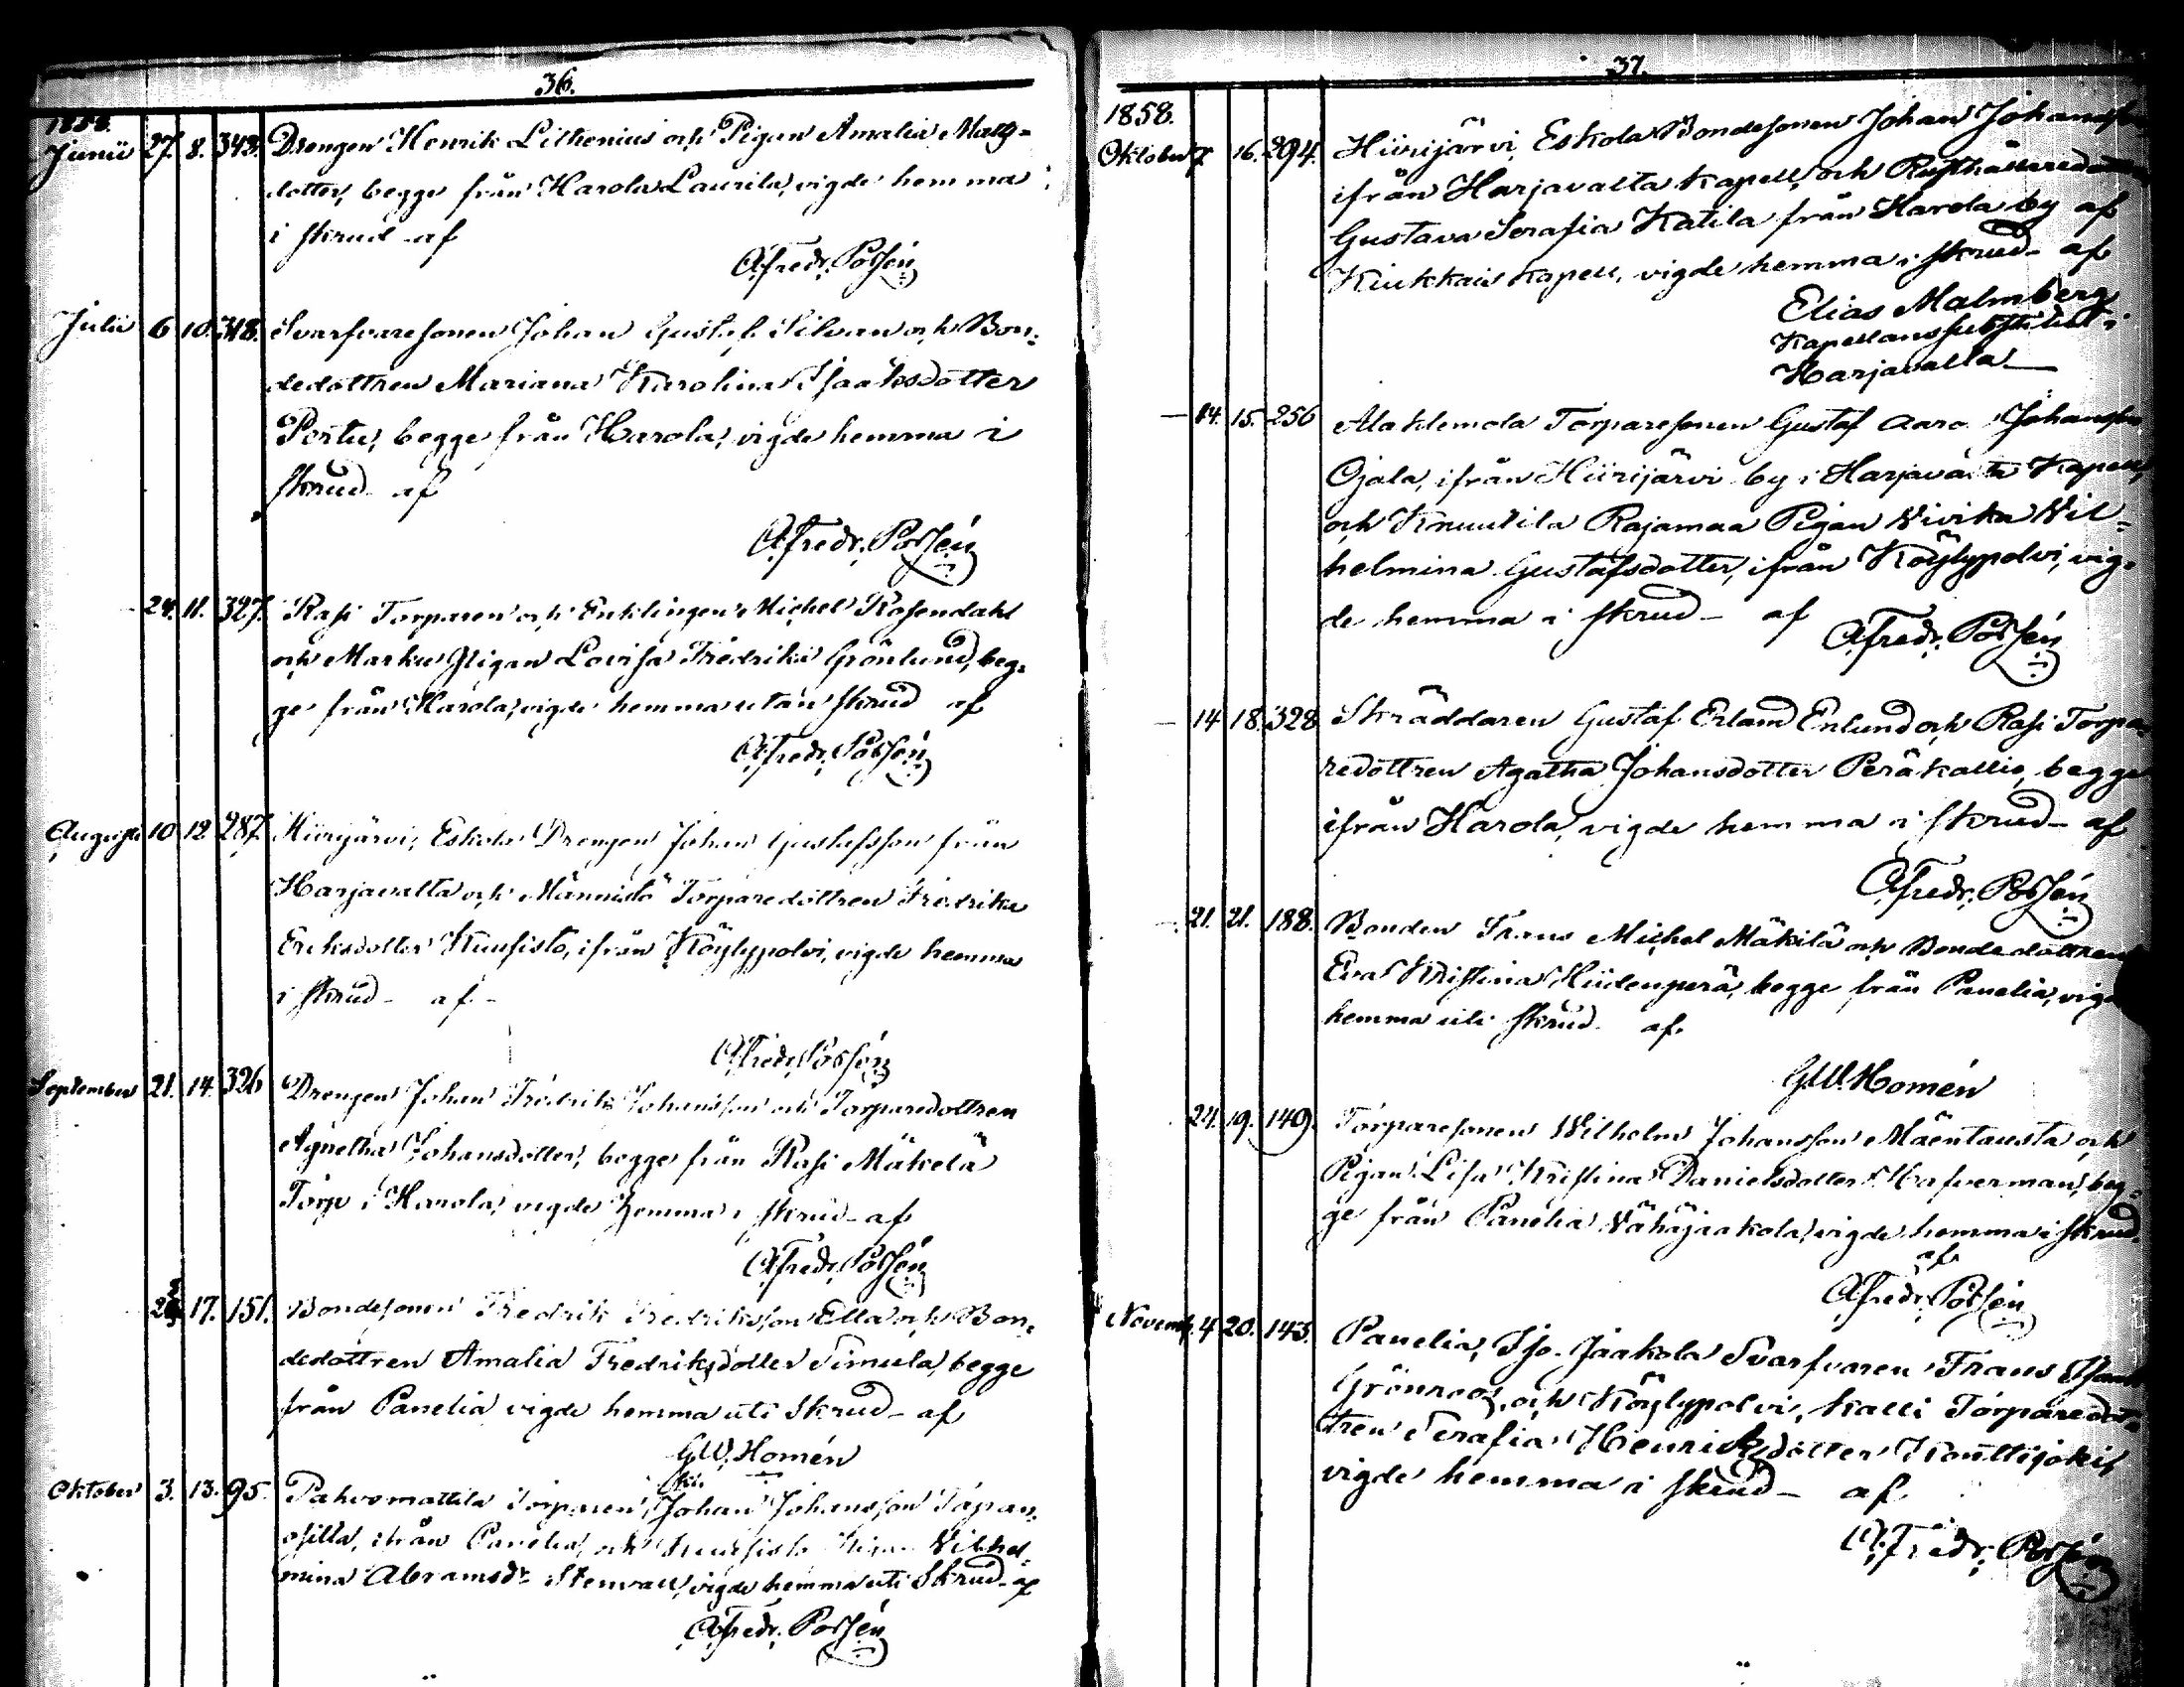 36.
1858.
Junii 27. 8. 343. Drengen Henrik Lithenius och Pigan Amalia Matts=
dotter, begge från Harola Laurila, vigde hemma
i skrud af
A. Fredr. Possén
Julii 6 10. 318. Svarfvaresonen Johan Gustaf Silvan och Bon=
dedottren Mariana Karolina Isaaksdotter
Perttu, begge från Harola, vigde hemma i
skrud af
A. Fredr. Possén
24. 11. 327. Rasi Torparen och Enklingen Michel Rosendahl
och Marku Pigan Lovisa Fredrika Grönlund, beg=
ge från Harola, vigde hemma utan skrud af
A. Fredr. Possén
Augusti 10 12. 287. Hiirijärvi, Eskola Drengen Johan Gustafsson från
Harjavalta och Männistö Torparedottren Fredrika
Eriksdotter Kuusisto, ifrån Köylypolvi, vigde hemma
i skrud af
A. Fredr. Possén
September 21. 14. 326 Drengen Johan Fredrik Johansson och Torparedottren
Agnetha Johansdotter, begge från Rasi Mäkelä
Torp i Harola, vigde hemma i skrud af
A. Fredr. Possén
17. 151. Bondesonen Fredrik Fredriksson Ella och Bon=
dedottren Amalia Fredriksdotter Simula, begge
från Panelia vigde hemma uti skrud af
G.W. Homén
Oktober 3. 13. 95. Pahvomattila Torparen Johan Johansson Tapan=
ifrån Panelia, och Kuusisto Pigan Vilhel=
mina Abramsdr Stenvall, vigde hemma uti Skrud af
A. Fredr. Possén
37.
1858.
Oktober 7 16. 294. Hiirijärvi, Eskola Bondesonen Johan Johansson
ifrån Harjavalta Kapell, och Rusthållaredottren
Gustava Serafia Katila från Harola by af
Kiukkais Kapell, vigde hemma i skrud af
Elias Malmberg
Kapellanssubstitut i
Harjavalta
14. 15. 256 Alaklemola Torparesonen Gustaf Aaro Johansson
Ojala, ifrån Hiirijärvi by i Harjavalta Kapell,
och Knuutila Rajamaa Pigan Vivika Vil=
helmina Gustafsdotter, ifrån Köylypolvi, vig=
de hemma i skrud af
A. Fredr. Possén
14 18. 328 Skräddaren Gustaf Erland Enlund och Rasi Torpa=
redottren Agatha Johansdotter Peräkallio, begge
ifrån Harola, vigde hemma i skrud af
A. Fredr. Possén
21. 21. 188. Bonden Frans Michel Mäkilä och Bondedottren
Eva Kristina Hiidenperä, begge från Panelia, vigde
hemma uti skrud af
G.W. Homén
24. 19. 149. Torparesonen Vilhelm Johansson Mäentausta och
Pigan Lisa Kristina Danielsdotter Hafverman, beg=
ge från Panelia Vähäjaakola, vigde hemma i skrud
af
A. Fredr. Possén
Novemb. 4 20. 143. Panelia, Iso-Jaakola Svarfvaren Frans
Grönroos, och Köylypolvi, Kalli Torparedot=
tren Serafia Henriksdotter Kouttijoki,
vigde hemma i skrud af
A. Fredr. Possén